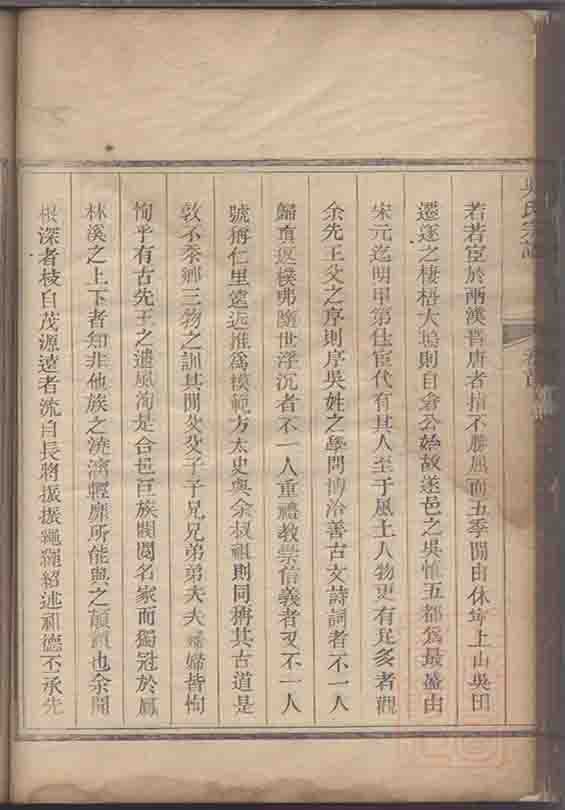 吳氏宗譜
卷首
若若宦於兩漢晉唐者指不勝屈而五季間由休寧上山吳田
遷遂之棲梧大塢則自倉公始故遂邑之吳惟五都爲最盛由
宋元迄明甲第仕宦代有其人至于風土人物更有足多者觀
余先王父之序則序吳姓之學問博洽善古文詩詞者不一人
歸眞返樸弗隨世浮沉者不一人重禮教崇信義者又不一人
號稱仁里遠近推爲模範方太史與余叔祖則同稱其古道是
敦不忝鄉三物之訓其間父父子子兄兄弟弟夫夫婦婦皆恂
恂乎有古先王之遺風洵是合邑巨族閥閱名家而獨冠於鳳
林溪之上下者知非他族之澆漓輕靡所能與之頡頏也余聞
根深者枝自茂源遠者流自長將振振繩繩紹述祖德丕承先